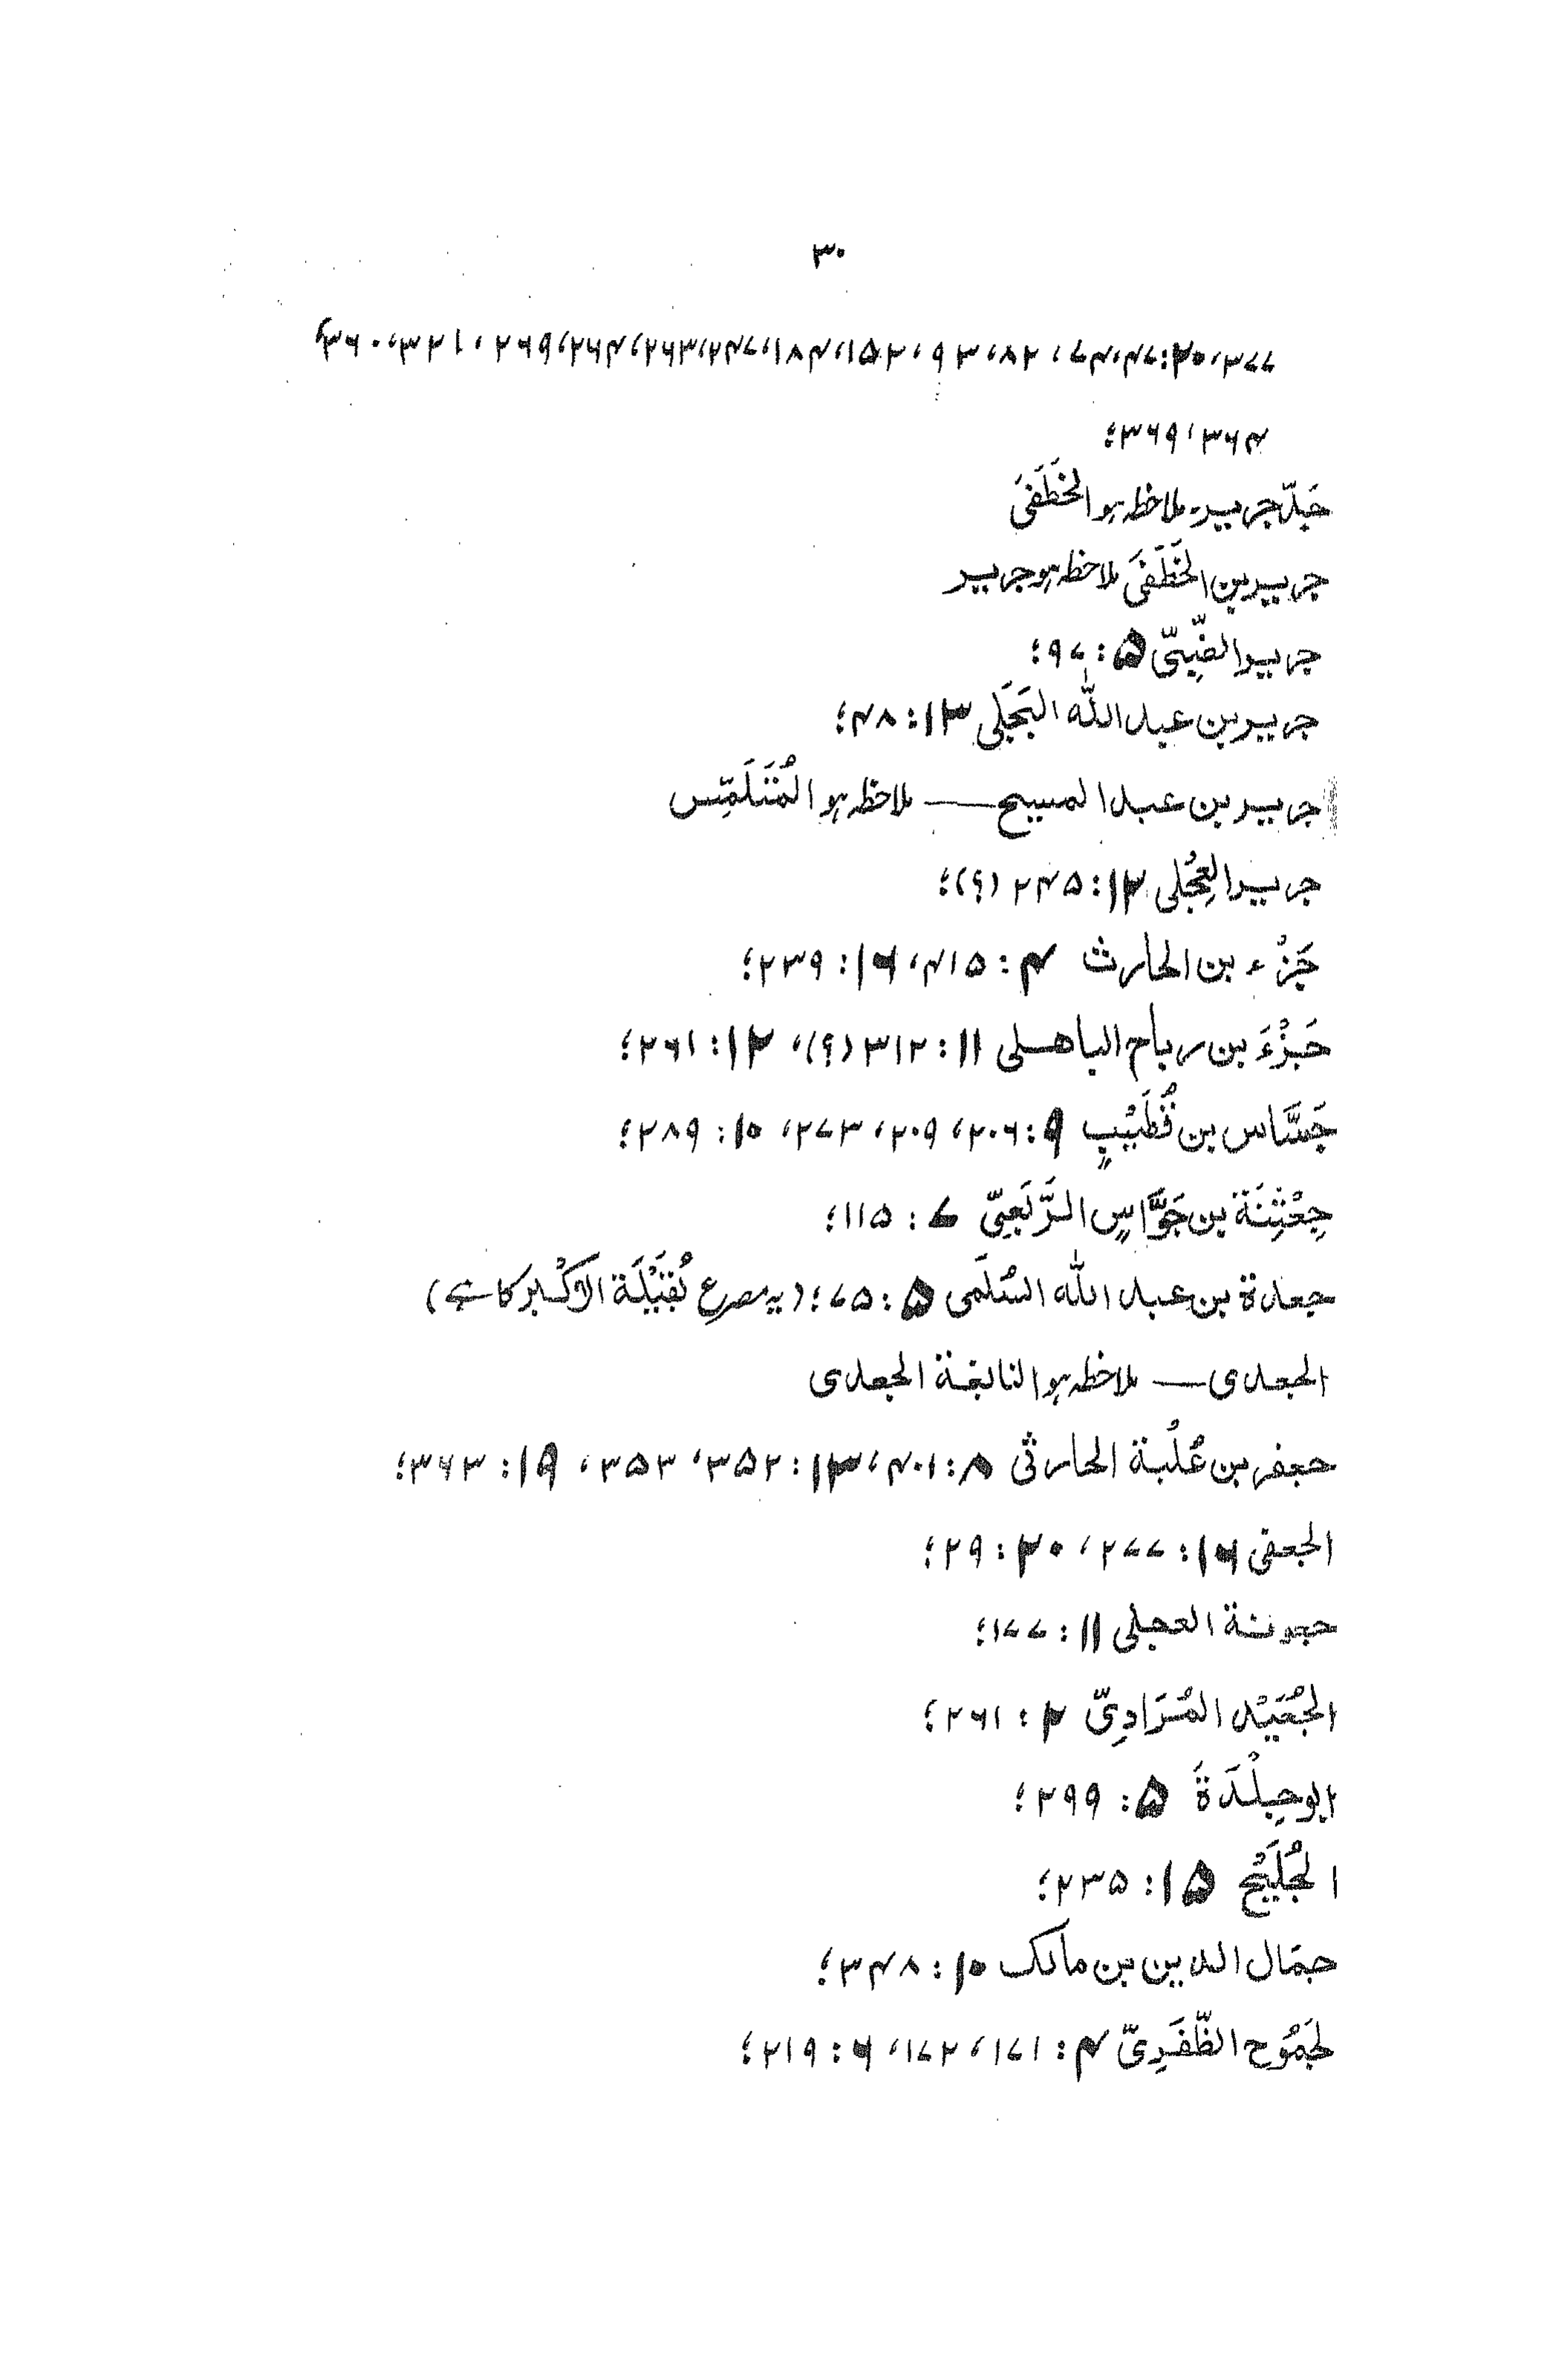 ۳۰
۳۷۷، ۲۰: ۴۷، ۷۴، ۲۷، ۲۸، ۳۹، ۱۵۲، ۱۷۴، ۲۴۷، ۲۶۳، ۲۶۴، ۲۶۹، ۳۲۱، ۳۶۰،
۳۶۴، ۳۶۹؛
جَدّ جریر۔ ملاخظہ ہو الخَطَفَیٰ
جریر بن الخَطَفَیٰ ملاخظہ ہو جریر
جریر الضِّبِیّ ۵: ۹۷؛
جریر بن عبد اللّٰہ البَجَلی ۱۳: ۴۸؛
جریر بن عبد المسیح — ملاخظہ ہو المُتَلَمِّس
جریر العِجْلی ۱۲: ۲۴۵ (؟)؛
جَزْء بن الحارث ۴: ۴۱۵، ۱۶: ۲۳۹؛
جَزْءَ بن رباح الباھلی ۱۱: ۳۱۲ (؟)، ۱۲: ۲۶۱؛
جَسَّاس بن قُطَیْبٍ ۹: ۲۰۶، ۲۰۹، ۲۷۳، ۱۰: ۲۸۹؛
جِعْثِنَة بن جَوَّاسٍ الرَّبَعِیّ ۷: ۱۱۵؛
جعدة بن عبد اللّٰہ السُلَمی ۵: ۷۵؛ (یہ مصرع بُقَیْلَة الأکْبر کا ہے)
الجعدی — ملاخظہ ہو النابغة الجعدی
جعفر بن عُلْبة الحارثی ۸: ۴۰۱، ۱۳: ۳۵۲، ۳۵۳، ۱۹: ۳۶۳؛
الجعفی ۱۶: ۲۷۷، ۲۰: ۲۹؛
جعونة العجلی ۱۱: ۱۷۷؛
الجُعَیْد المُرَادِیّ ۲: ۲۶۱؛
ابو جِلْدَةَ ۵: ۲۹۹؛
الجُلَیْح ۱۵: ۲۳۵؛
جمال الدین بن مالک ۱۰: ۳۴۸؛
لجَمُوح الظَّفَرِیّ ۴: ۱۷۱، ۱۷۲، ۶: ۲۱۹؛